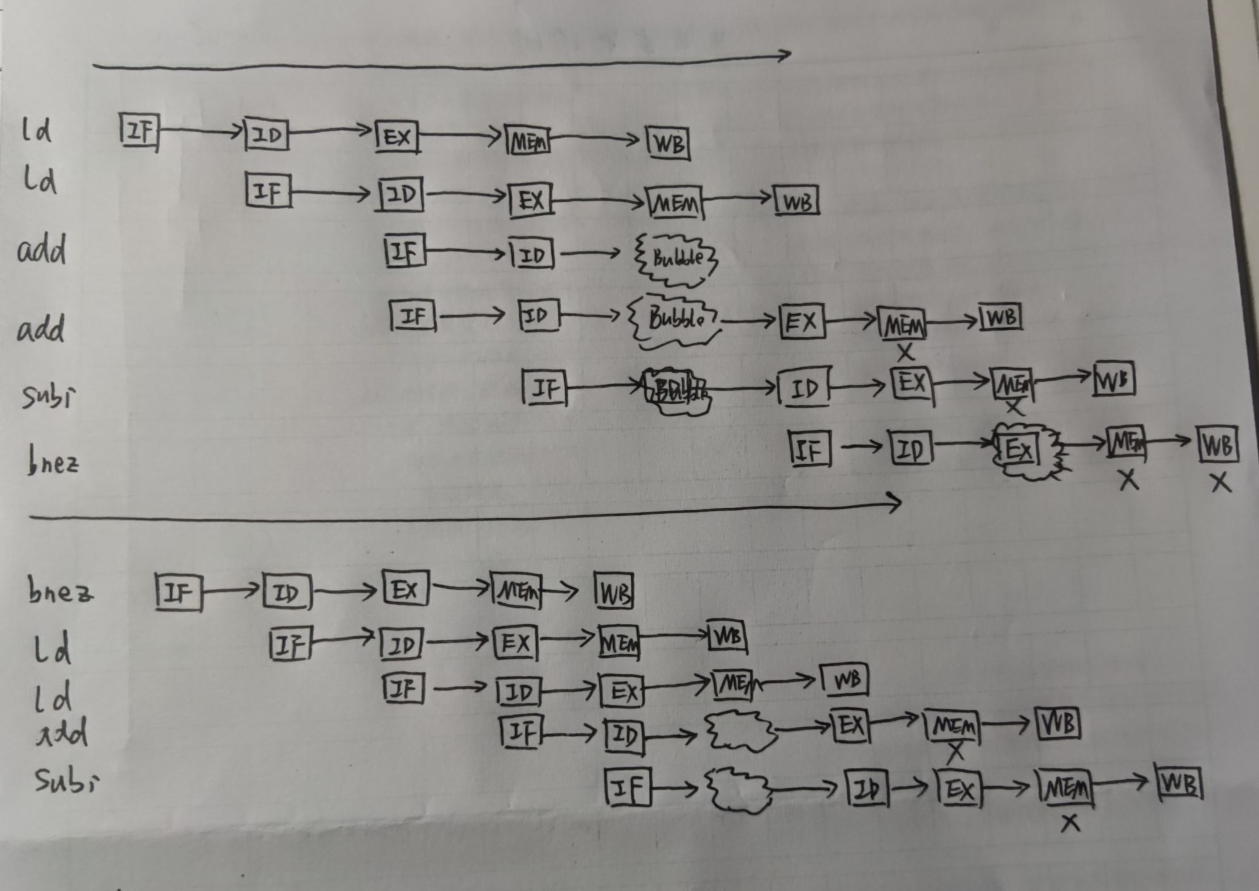 ld IF ID EX MEM WB
ld IF ID EX MEM WB
add IF ID Bubble
add IF ID Bubble EX MEM WB
X
subi IF ID EX MEM WB
X
bnez IF ID EX MEM WB
X X
bnez IF ID EX MEM WB
Ld IF ID EX MEM WB
Ld IF ID EX MEM WB
add IF ID EX MEM WB
X
Subi IF ID EX MEM WB
X